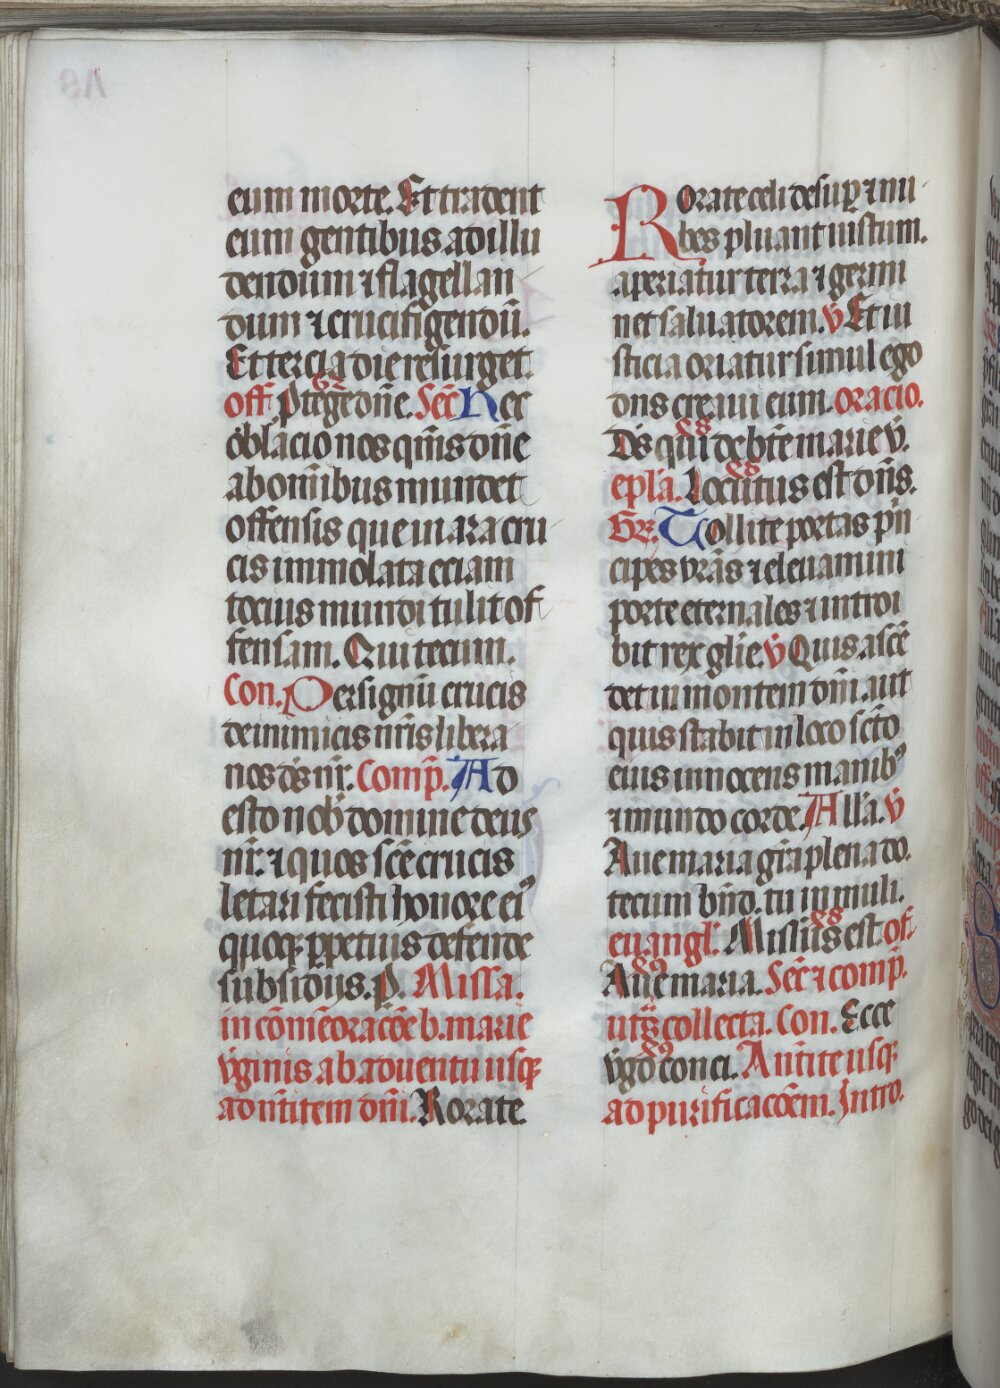 eum morte. Et tradent
eum gentibus ad illu
dendum ⁊ flagellan
dum ⁊ crucifigendū.
Et tercia die resurget
off ꝓtege dn̄e. Sec̄ Hec
oblacio nos qm̄s dn̄e
ab om̄ibus mundet
offensis que in ara cru
cis immolata eciam
tocius mundi tulit of
fensam. Qui tecum.
Con. Per signū crucis
de inimicis nr̄is libera
nos ds̄ nr̄. Comp̄. Ad
esto nob̄ domine deus
nr̄. ⁊ quos scē crucis
letari fecisti honore ei⁹
quoqꝫ ꝑpetuis defende
subsidijs. p. Missa.
in cōmēoracōe b. marie
v̄ginis ab aduentu usqꝫ
ad nr̄item dn̄i. Rorate
Rorate celi desuꝑ ⁊ nu
bes pluant iustum.
aperiatur terra ⁊ germi
net saluatorem. v̄ Et iu
sticia oriatur simul ego
dn̄s creaui eum. oracio.
Ds̄ qui de bt̄e marie v̄.
epl̄a. Locutus est dn̄s.
Gr̄. Tollite portas pn̄
cipes vr̄as ⁊ eleuamini
porte eternales ⁊ introi
bit rex gl̄ie. v̄ Quis ascē
det in montem dn̄i. aut
quis stabit in loco sct̄o
eius innocens manib⁹
⁊ mundo corde. All̄a. v̄
Aue maria gr̄a plena do.
tecum bn̄d. tu in muli.
euangl̄. Missus est of.
Aue maria. Sec̄ ⁊ comp̄.
collecta. Con. Ecce
v̄go conci. A usqꝫ
ad purificacōem. Intro.